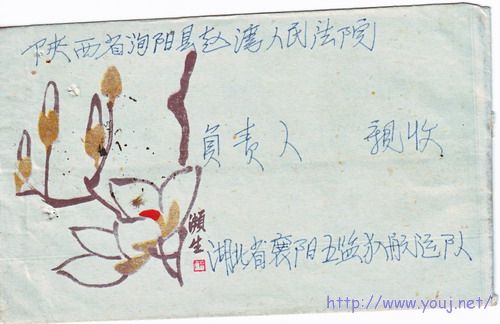 陕西省洵阳县赵湾人民法院
负责人 亲收
灏生
湖北省襄阳五监狱航运队
http://www.youj.net/